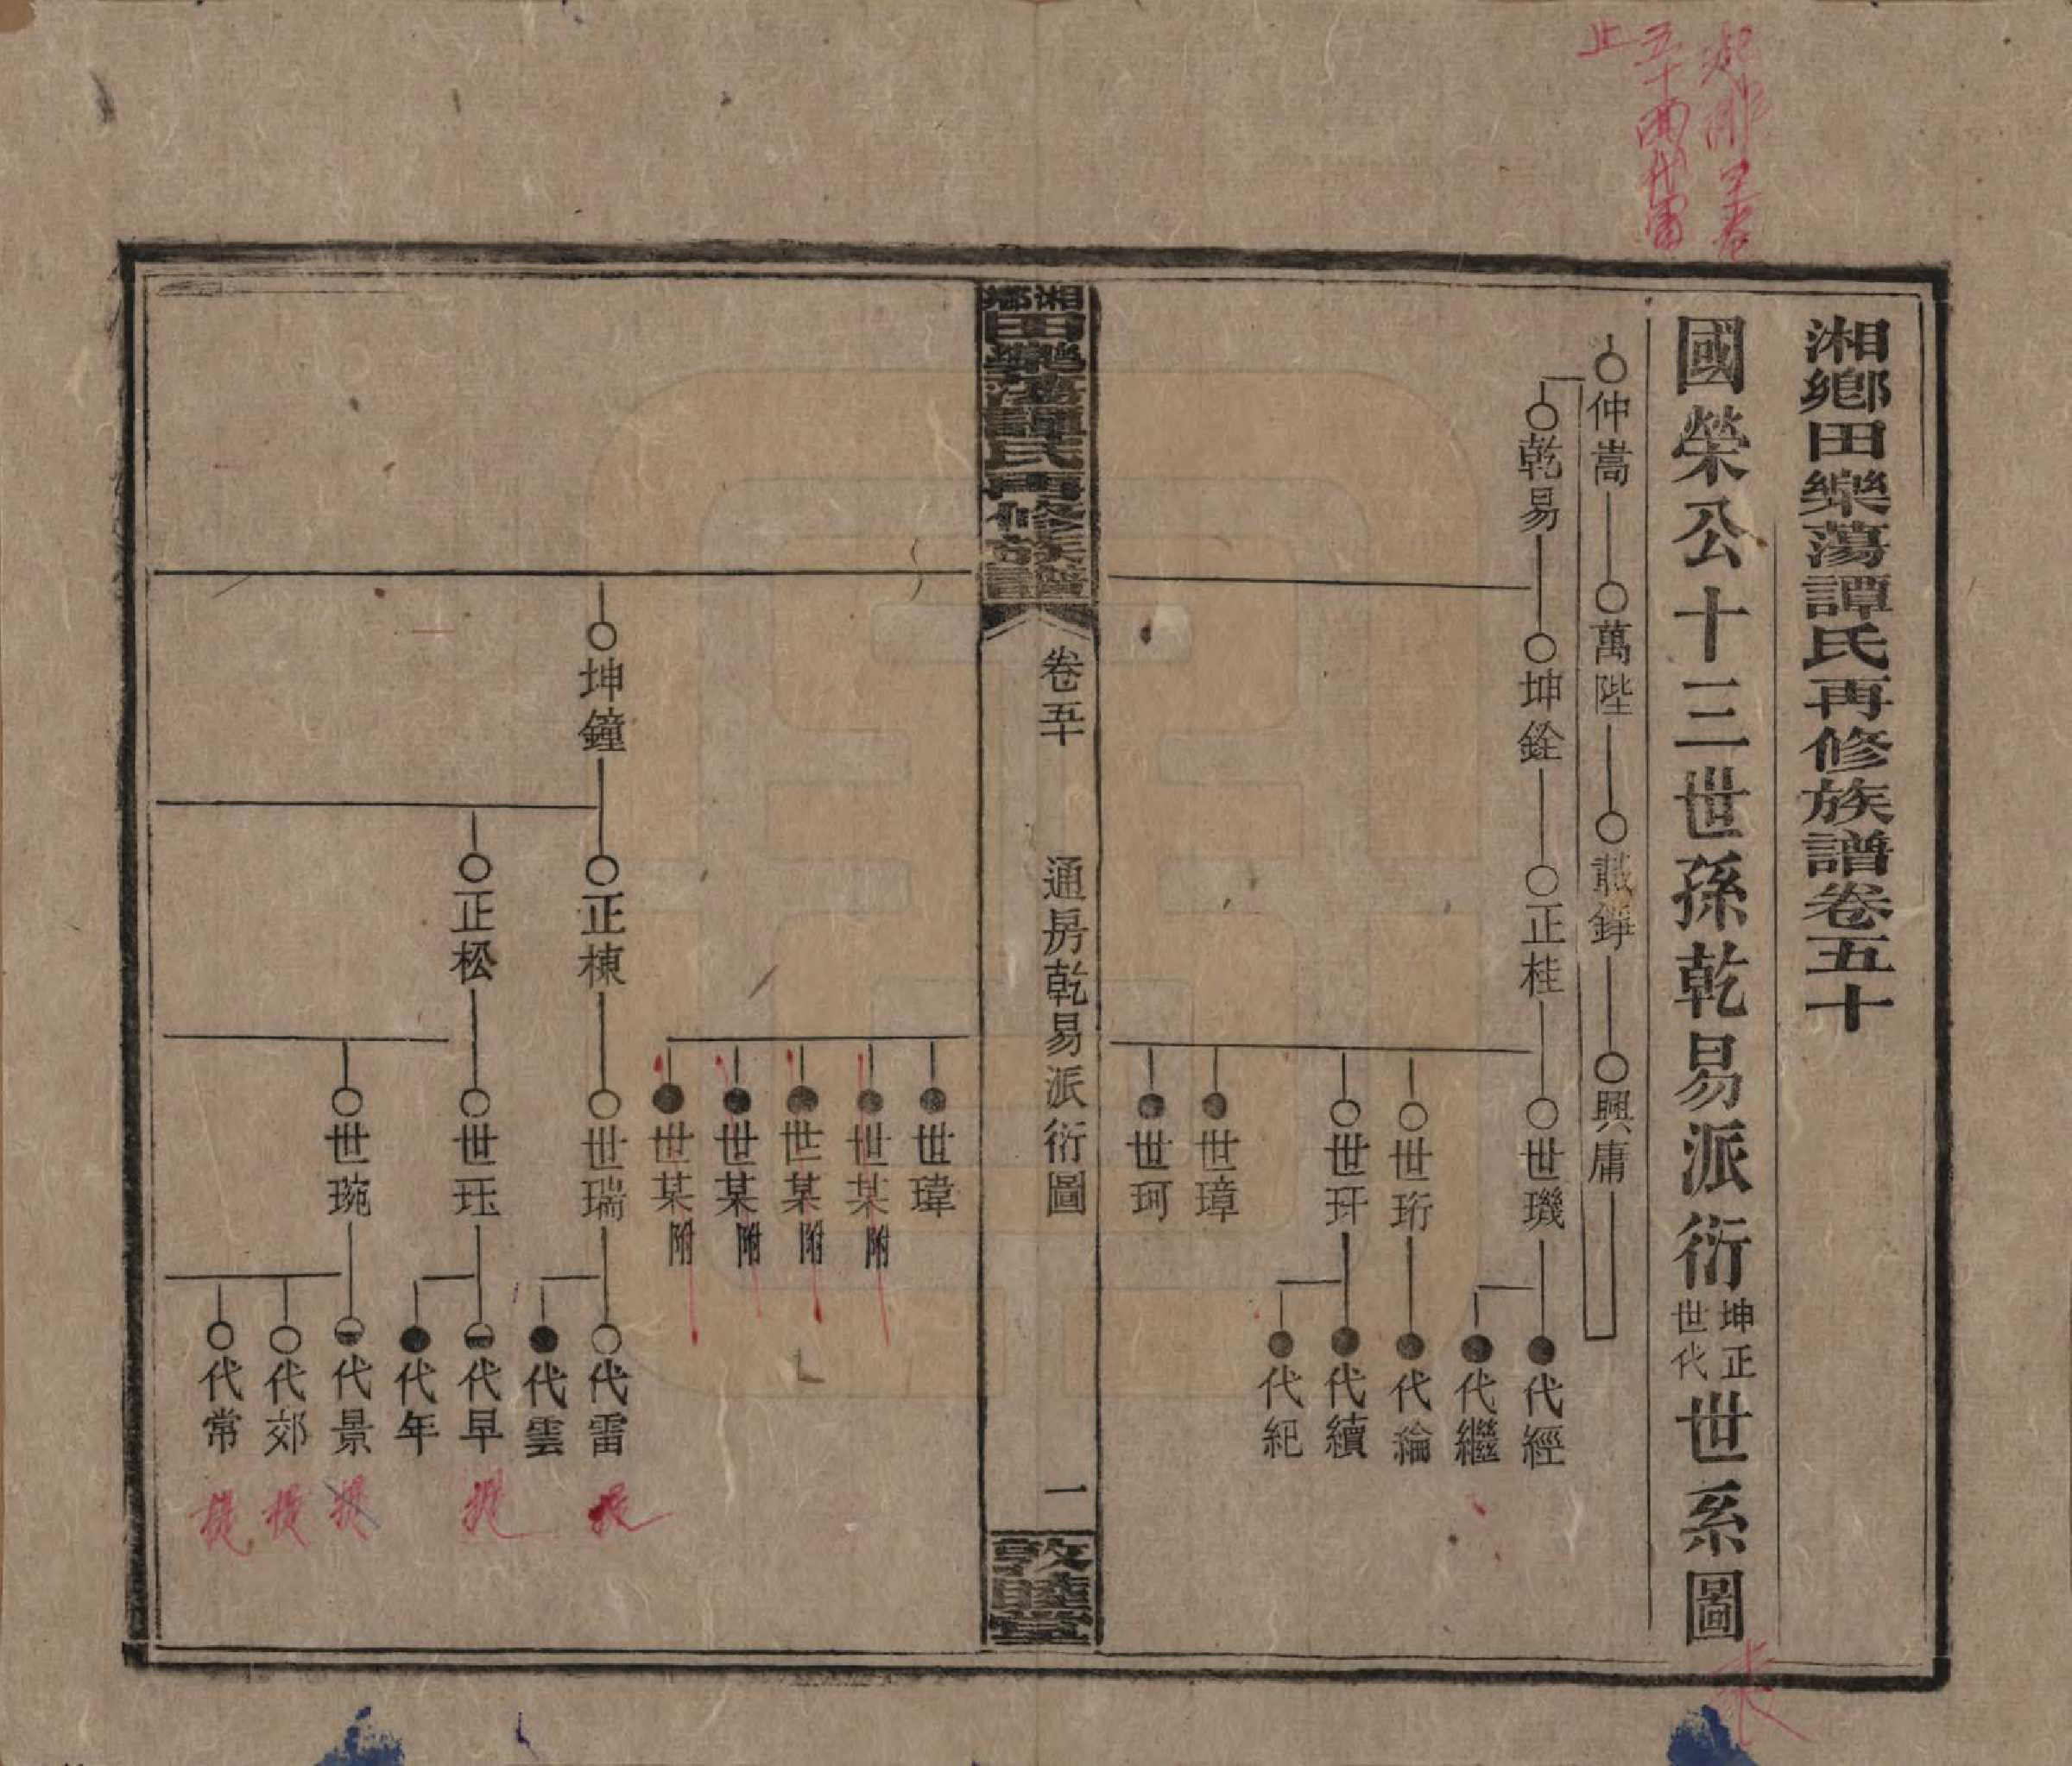 湘鄉田樂蕩譚氏再修族譜卷五十
國榮公十三世孫乾易派衍坤正世代世系圖
仲嵩 萬陛 載錚 興庸
乾易 坤銓 正桂 世璣 代經
代繼
世珩 代綸
世玕 代續
代紀
世璋
世珂
湘鄉田樂蕩譚氏再修族譜 卷五十 通房乾易派衍圖 一 敦睦堂
世瑋
世某附
世某附
世某附
世某附
坤鐘 正棟 世瑞 代雷
代雲
正松 世玨 代早
代年
世琬 代景
代郊
代常